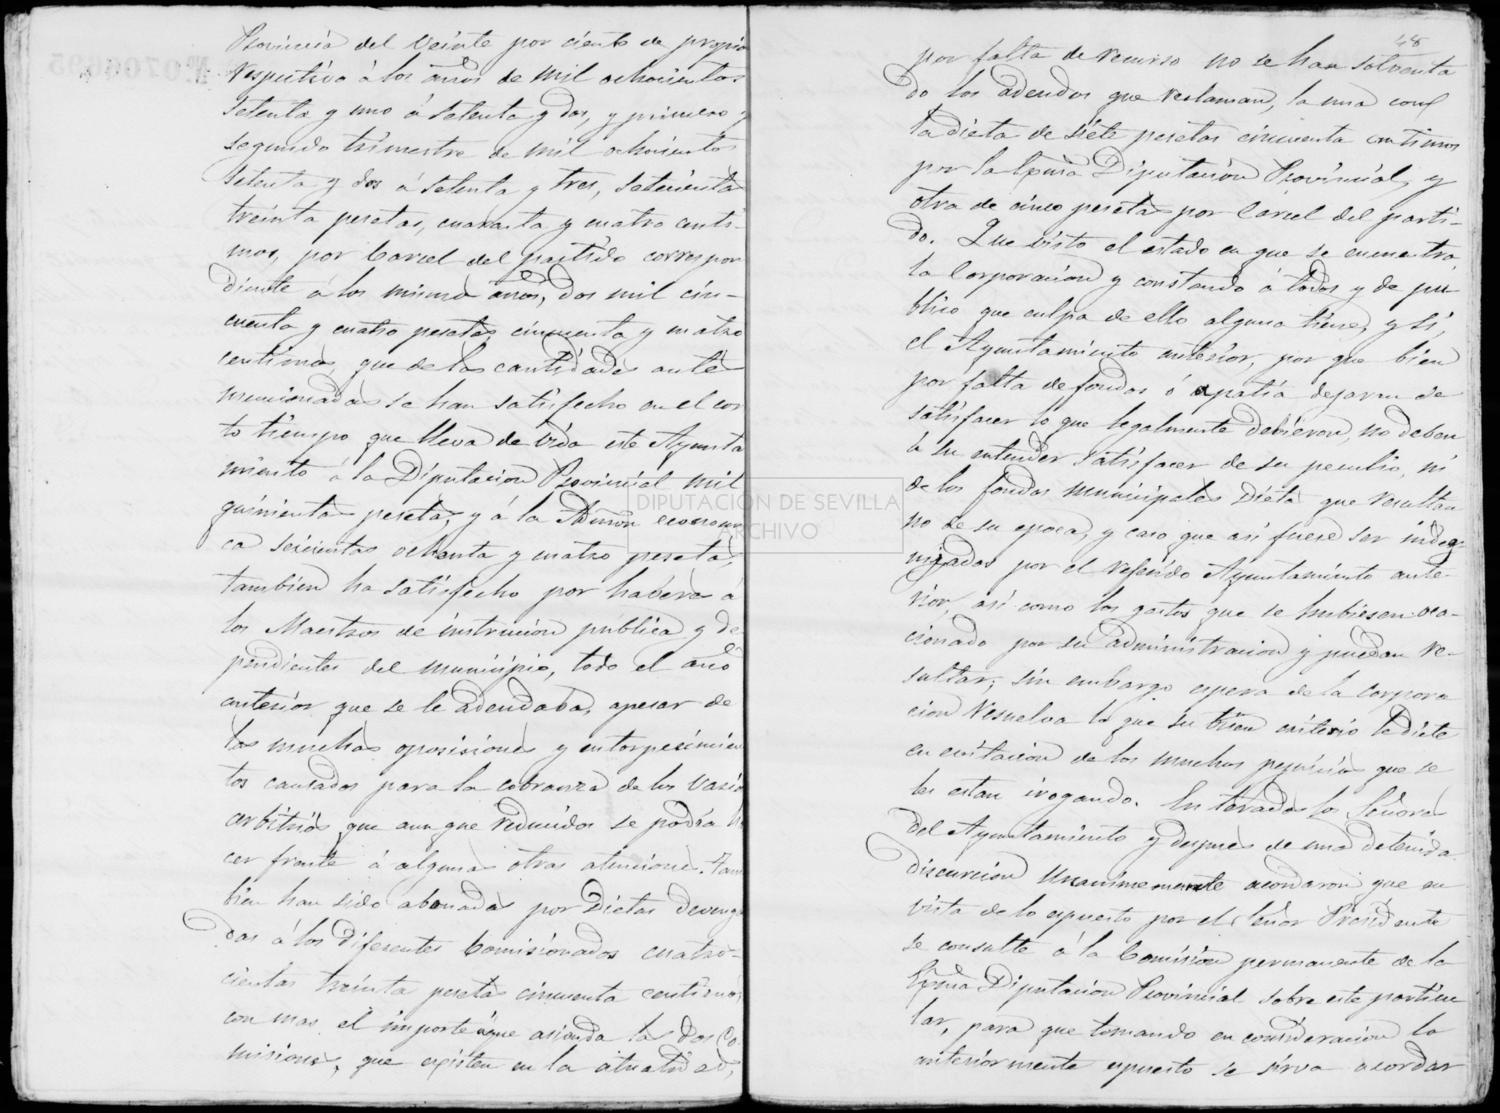 Provincia del veinte por ciento de propio
respectivo á los años de mil ochocientos
setenta y uno á setenta y dos, y primero y
segundo trimestre de mil ochocientos
setenta y dos á setenta y tres, setecienta
treinta pesetas, cuarenta y cuatro centi-
mos, por Carcel del partido correspon
diente á los mismos años, dos mil cin-
cuenta y cuatro pesetas cincuenta y cuatro
centimos, que de las cantidades ante
mencionadas se han satisfecho en el cor
to tiempo que lleva de vida este Ayunta
miento á la Diputacion Provincial mil
quinientas pesetas, y á la Admon economi
ca seicientas ochenta y cuatro pesetas,
tambien ha satisfecho por haberes á
los Maestros de instrucion publica y de
pendientes del municipio, todo el año
anterior que se le adeudaba, apesar de
las muchas oposiciones y entorpecimien
tos causados para la cobranza de los varios
arbitrios que aun que reducidos se podria ha
cer frente á algunas otras atenciones. Tam
bien han sido abonadas por Dietas devenga
das á los diferentes Comisionados cuatro-
cientas treinta pesetas cincuenta centimos,
con mas el importe á que asienda las dos Co
misiones, que existen en la atualidad,
48
por falta de recurso no se han solventa
do los adeudos que reclaman, la una con
la dieta de siete pesetas cincuenta centimos
por la Exma Diputación Provincial, y
otra de cinco pesetas por Carcel del parti-
do. Que visto el estado en que se encuentra
la Corporacion y constando á todos y de pu
blico que culpa de ello alguna tiene, y si,
el Ayuntamiento anterior, por que bien
por falta de fondos ó apatía dejaron de
satisfacer lo que legalmente debieron, no deben
á su entender satisfacer de su peculio, ni
de los fondos municipales dieta que resultan
no de su epoca, y caso que asi fuere ser indeg
nizados por el referido Ayuntamiento ante-
rior, asi como los gastos que se hubiesen oca-
cionado por su administracion y puedan re-
sultar; sin embargo espera de la Corpora
cion resuelva lo que su bien criterio le dicte
en evitacion de los muchos perjuicios que se
les estan irogando. Enterados los Señores
del Ayuntamiento y despues de una detenida
discucion unanimemente acordaron que en
vista de lo espuesto por el Señor Presidente
se consulte á la Comision permanente de la
Exma Diputacion Provincial sobre este particu
lar, para que tomando en consideracion lo
anteriormente espuesto se sirva acordar
DIPUTACION DE SEVILLA
ARCHIVO